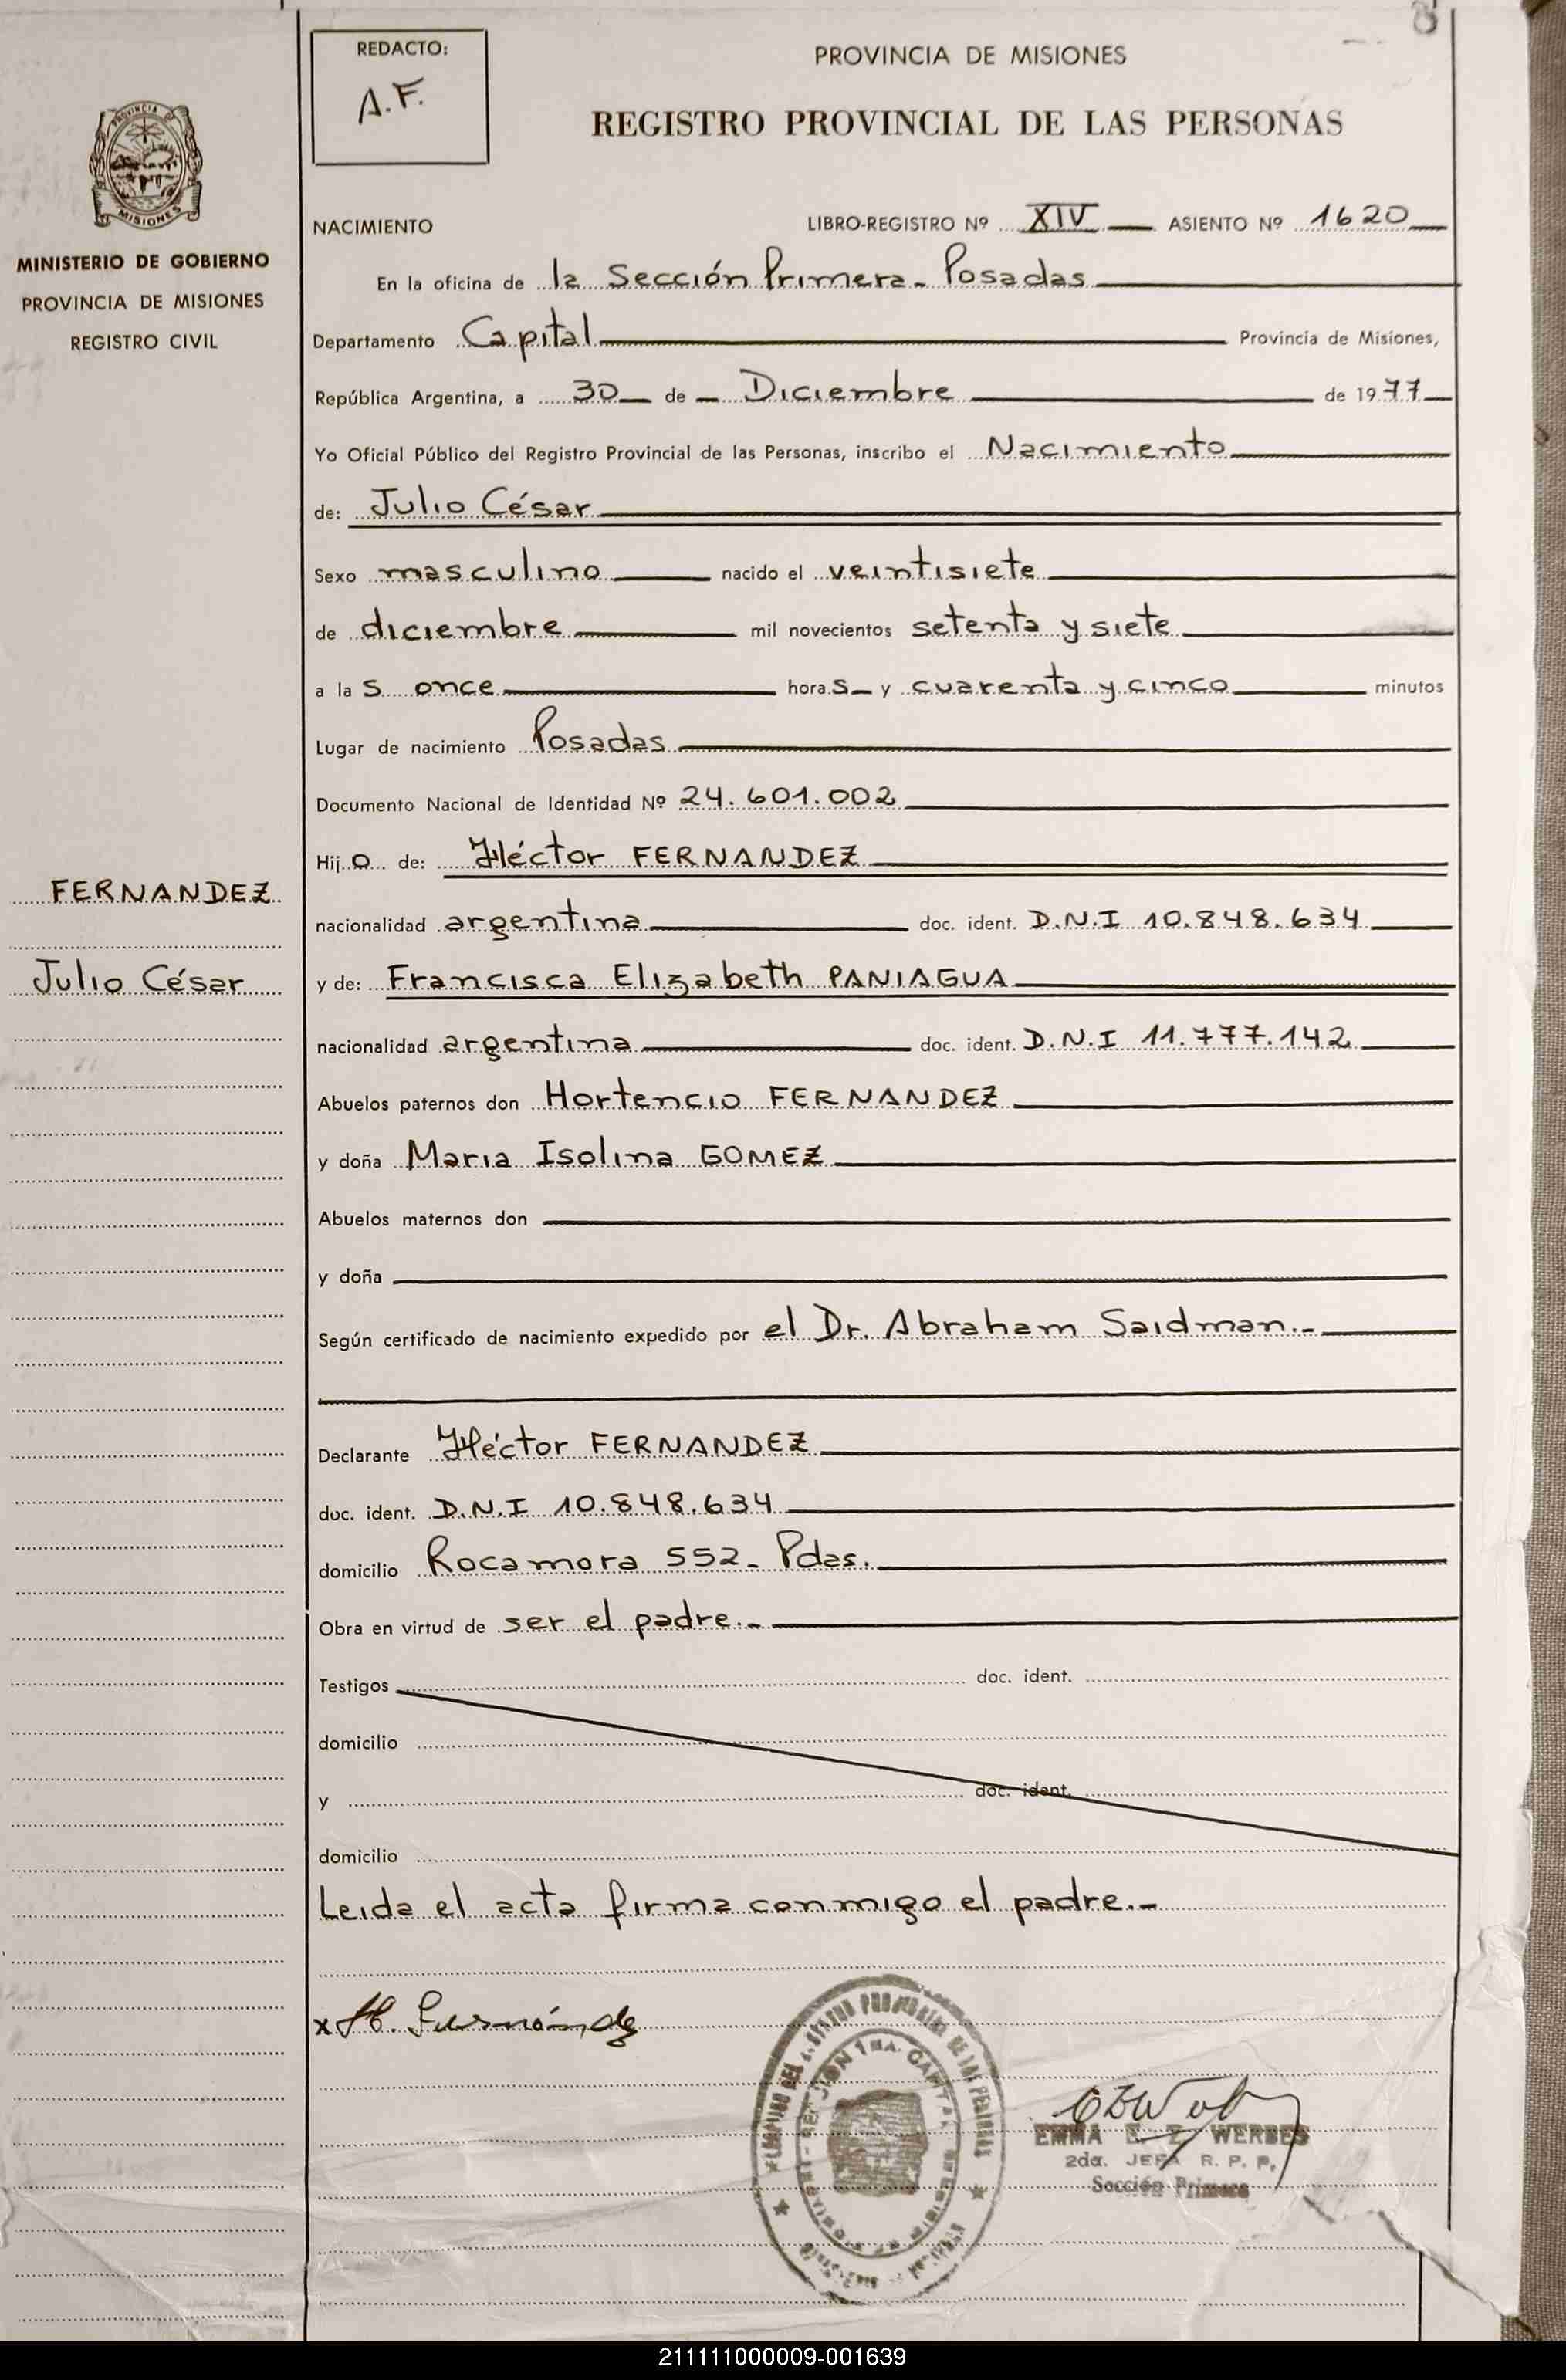 REDACTO:
A.F.
PROVINCIA DE MISIONES
REGISTRO PROVINCIAL DE LAS PERSONAS
PROVINCIA DE
MISIONES
MINISTERIO DE GOBIERNO
PROVINCIA DE MISIONES
REGISTRO CIVIL
NACIMIENTO LIBRO-REGISTRO Nº XIV ASIENTO Nº 1620
En la oficina de la Sección Primera - Posadas
Departamento Capital Provincia de Misiones,
República Argentina, a 30 de Diciembre de 1977
Yo Oficial Público del Registro Provincial de las Personas, inscribo el Nacimiento
de: Julio César
Sexo masculino nacido el veintisiete
de diciembre mil novecientos setenta y siete
a las once horas y cuarenta y cinco minutos
Lugar de nacimiento Posadas
Documento Nacional de Identidad Nº 24.601.002
Hijo de: Héctor FERNANDEZ
FERNANDEZ
nacionalidad argentina doc. ident. D.N.I 10.848.634
Julio César
y de: Francisca Elizabeth PANIAGUA
nacionalidad argentina doc. ident. D.N.I 11.777.142
Abuelos paternos don Hortencio FERNANDEZ
y doña Maria Isolina GOMEZ
Abuelos maternos don
y doña
Según certificado de nacimiento expedido por el Dr. Abraham Saidman.-
Declarante Héctor FERNANDEZ
doc. ident. D.N.I 10.848.634
domicilio Rocamora 552 - Pdas.
Obra en virtud de ser el padre.-
Testigos doc. ident.
domicilio
y doc. ident.
domicilio
Leida el acta firma conmigo el padre.-
x H. Fernández
EMMA E. Z. WERBES
2da. JEFA R. P. P.
Sección Primera
211111000009-001639